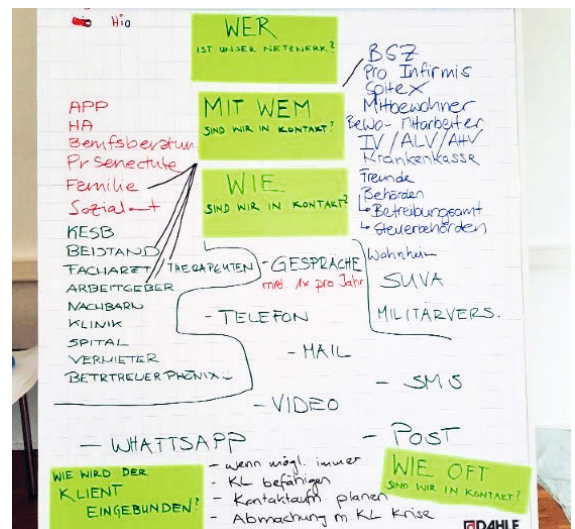 Hio
WER
IST UNSER NETZWERK?
MIT WEM
SIND WIR IN KONTAKT?
WIE
SIND WIR IN KONTAKT?
APP
HA
Berufsberatung
Pr Senectute
Familie
Sozial
KESB
BEISTAND
FACHARZT / THERAPEUTEN
ARBEITGEBER
NACHBARN
KLINIK
SPITAL
VERMIETER
BETRTREUER PHÖNIX
BSZ
Pro Infirmis
Spitex
Mitbewohner
Bewo- Mitarbeiter
IV / ALV / AHV
Krankenkasse
Freunde
Behörden
↳ Betreibungsamt
↳ Steuerbehörden
Wohnheim
SUVA
MILITÄRVERS.
- GESPRÄCHE
med. 1x pro Jahr
- TELEFON
- MAIL
- SMS
- VIDEO
- WHATTSAPP
- POST
WIE WIRD DER
KLIENT
EINGEBUNDEN?
- wenn mögl. immer
- KL befähigen
- Kontaktaufn. planen
- Abmachung m. KL Krise
WIE OFT
SIND WIR IN KONTAKT?
DAHLE